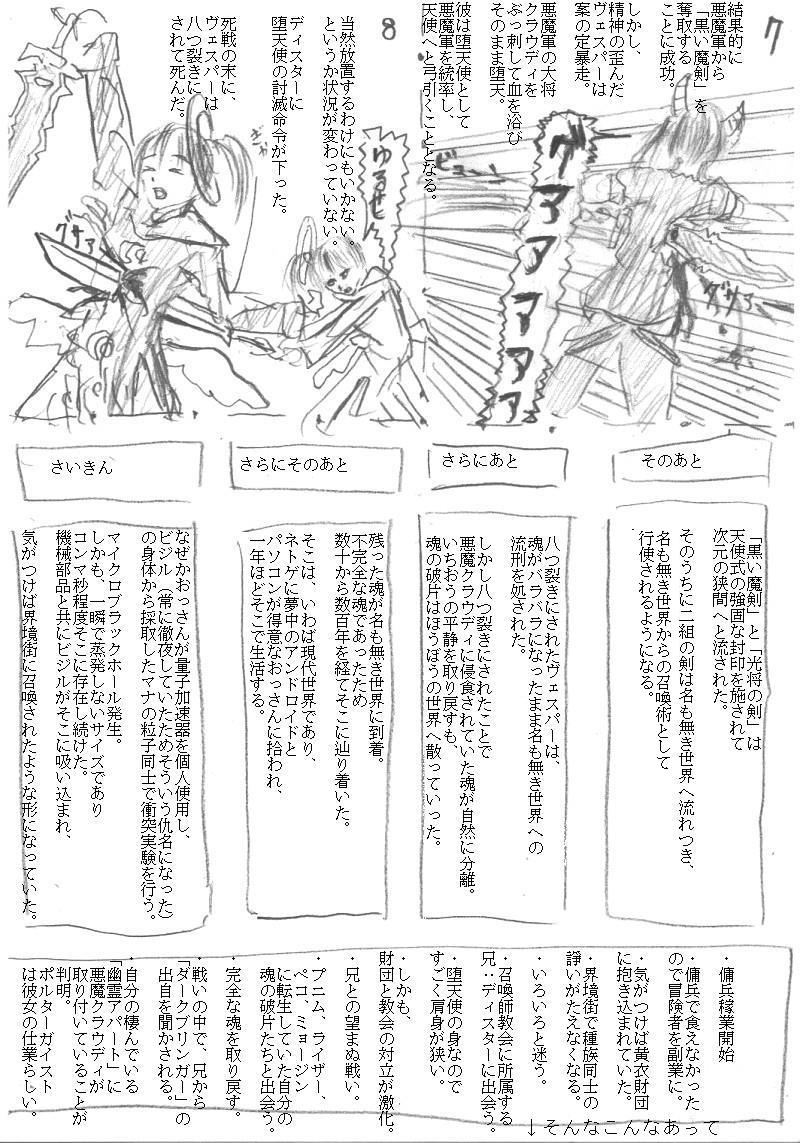 7
結果的に
悪魔軍から
「黒い魔剣」を
奪取する
ことに成功。
しかし、
精神の歪んだ
ヴェスパーは
案の定暴走。
悪魔軍の大将
クラウディを
ぶっ刺して血を浴び
そのまま堕天。
彼は堕天使として
悪魔軍を統率し、
天使へと弓引くこととなる。
グアアアアアア
グサァ
ビュー
8
当然放置するわけにもいかない。
というか状況が変わっていない。
ディスターに
堕天使の討滅命令が下った。
死戦の末に、
ヴェスパーは
八つ裂きに
されて死んだ。
ゆるせん
グサァ
そのあと
「黒い魔剣」と「光将の剣」は
天使式の強固な封印を施されて
次元の狭間へと流された。
そのうちに二組の剣は名も無き世界へ流れつき、
名も無き世界からの召喚術として
行使されるようになる。
さらにあと
八つ裂きにされたヴェスパーは、
魂がバラバラになったまま名も無き世界への
流刑を処された。
しかし八つ裂きにされたことで
悪魔クラウディに侵食されていた魂が自然に分離。
いちおうの平静を取り戻すも、
魂の破片はほうぼうの世界へ散っていった。
さらにそのあと
残った魂が名も無き世界に到着。
不完全な魂であったため
数十から数百年を経てそこに辿り着いた。
そこは、いわば現代世界であり、
ネトゲに夢中のアンドロイドと
パソコンが得意なおっさんに拾われ、
一年ほどそこで生活する。
さいきん
なぜかおっさんが量子加速器を個人使用し、
ビジル（常に徹夜していたためそういう仇名になった）
の身体から採取したマナの粒子同士で衝突実験を行う。
マイクロブラックホール発生。
しかも、一瞬で蒸発しないサイズであり
コンマ秒程度そこに存在し続けた。
機械部品と共にビジルがそこに吸い込まれ、
気がつけば界境街に召喚されたような形になっていた。
↓そんなこんなあって
・傭兵稼業開始
・傭兵で食えなかった
ので冒険者を副業に。
・気がつけば黄衣財団
に抱き込まれていた。
・界境街で種族同士の
諍いがたえなくなる。
・いろいろと迷う。
・召喚師教会に所属する
兄：ディスターに出会う。
・堕天使の身なので
すごく肩身が狭い。
・しかも、
財団と教会の対立が激化。
・兄との望まぬ戦い。
・プニム、ライザー、
ペコ、ミョージン
に転生していた自分の
魂の破片たちと出会う。
・完全な魂を取り戻す。
・戦いの中で、兄から
「ダークブリンガー」の
出自を聞かされる。
・自分の棲んでいる
「幽霊アパート」に
悪魔クラウディが
取り付いていることが
判明。
ポルターガイスト
は彼女の仕業らしい。